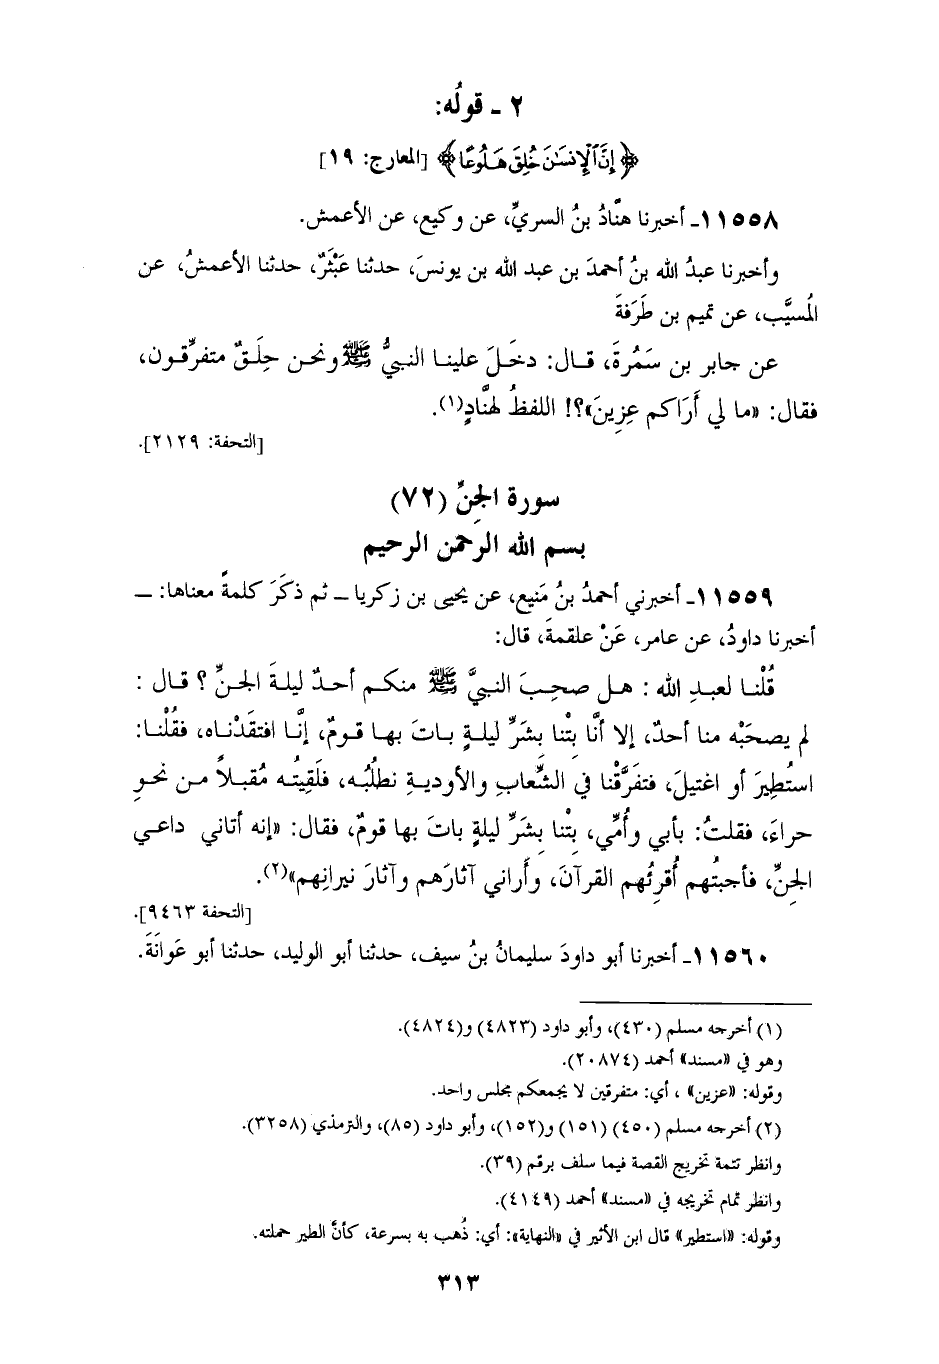 ٢ ـ قولُه:
﴿إِنَّ ٱلْإِنسَٰنَ خُلِقَ هَلُوعًا﴾ [المعارج: ١٩]
١١٥٥٨ـ أخبرنا هنَّادُ بنُ السريِّ، عن وكيع، عن الأعمش.
وأخبرنا عبدُ الله بنُ أحمدَ بن عبد الله بن يونسَ، حدثنا عَبْثَرٌ، حدثنا الأعمشُ، عن
المُسيَّب، عن تميم بن طَرَفةَ
عن جابر بن سَمُرةَ، قال: دخَلَ علينا النبيُّ ﷺ ونحن حِلَقٌ متفرِّقون،
فقال: «ما لي أَرَاكم عِزِينَ»؟! اللفظُ لهنَّادٍ(١).
[التحفة: ٢١٢٩].
سورة الجِنِّ (٧٢)
بسم الله الرحمن الرحيم
١١٥٥٩ـ أخبرني أحمدُ بنُ مَنيع، عن يحيى بن زكريا ـ ثم ذكَرَ كلمةً معناها: ـ
أخبرنا داودُ، عن عامر، عَنْ علقمةَ، قال:
قُلْنا لعبدِ الله : هل صحِبَ النبيَّ ﷺ منكم أحدٌ ليلةَ الجنِّ ؟ قال :
لم يصحَبْه منا أحدٌ، إلا أنَّا بِتْنا بِشَرِّ ليلةٍ باتَ بها قومٌ، إنَّا افتقَدْناه، فقُلْنا:
استُطِيرَ أو اغتيلَ، فتفَرَّقْنا في الشِّعابِ والأوديةِ نطلُبُه، فلَقِيتُه مُقبلاً من نحوِ
حراءَ، فقلتُ: بأبي وأُمِّي، بِتْنا بِشَرِّ ليلةٍ باتَ بها قومٌ، فقال: «إنه أتاني داعي
الجِنِّ، فأجبتُهم أُقرِئُهم القرآنَ، وأَراني آثارَهم وآثارَ نيرانِهم»(٢).
[التحفة ٩٤٦٣].
١١٥٦٠ـ أخبرنا أبو داودَ سليمانُ بنُ سيف، حدثنا أبو الوليد، حدثنا أبو عَوانَةَ.
(١) أخرجه مسلم (٤٣٠)، وأبو داود (٤٨٢٣) و(٤٨٢٤).
وهو في «مسند» أحمد (٢٠٨٧٤).
وقوله: «عزين» ، أي: متفرقين لا يجمعكم مجلس واحد.
(٢) أخرجه مسلم (٤٥٠) (١٥١) و(١٥٢)، وأبو داود (٨٥)، والترمذي (٣٢٥٨).
وانظر تتمة تخريج القصة فيما سلف برقم (٣٩).
وانظر تمام تخريجه في «مسند» أحمد (٤١٤٩).
وقوله: «استطير» قال ابن الأثير في «النهاية»: أي: ذُهب به بسرعة، كأنَّ الطير حملته.
٣١٣